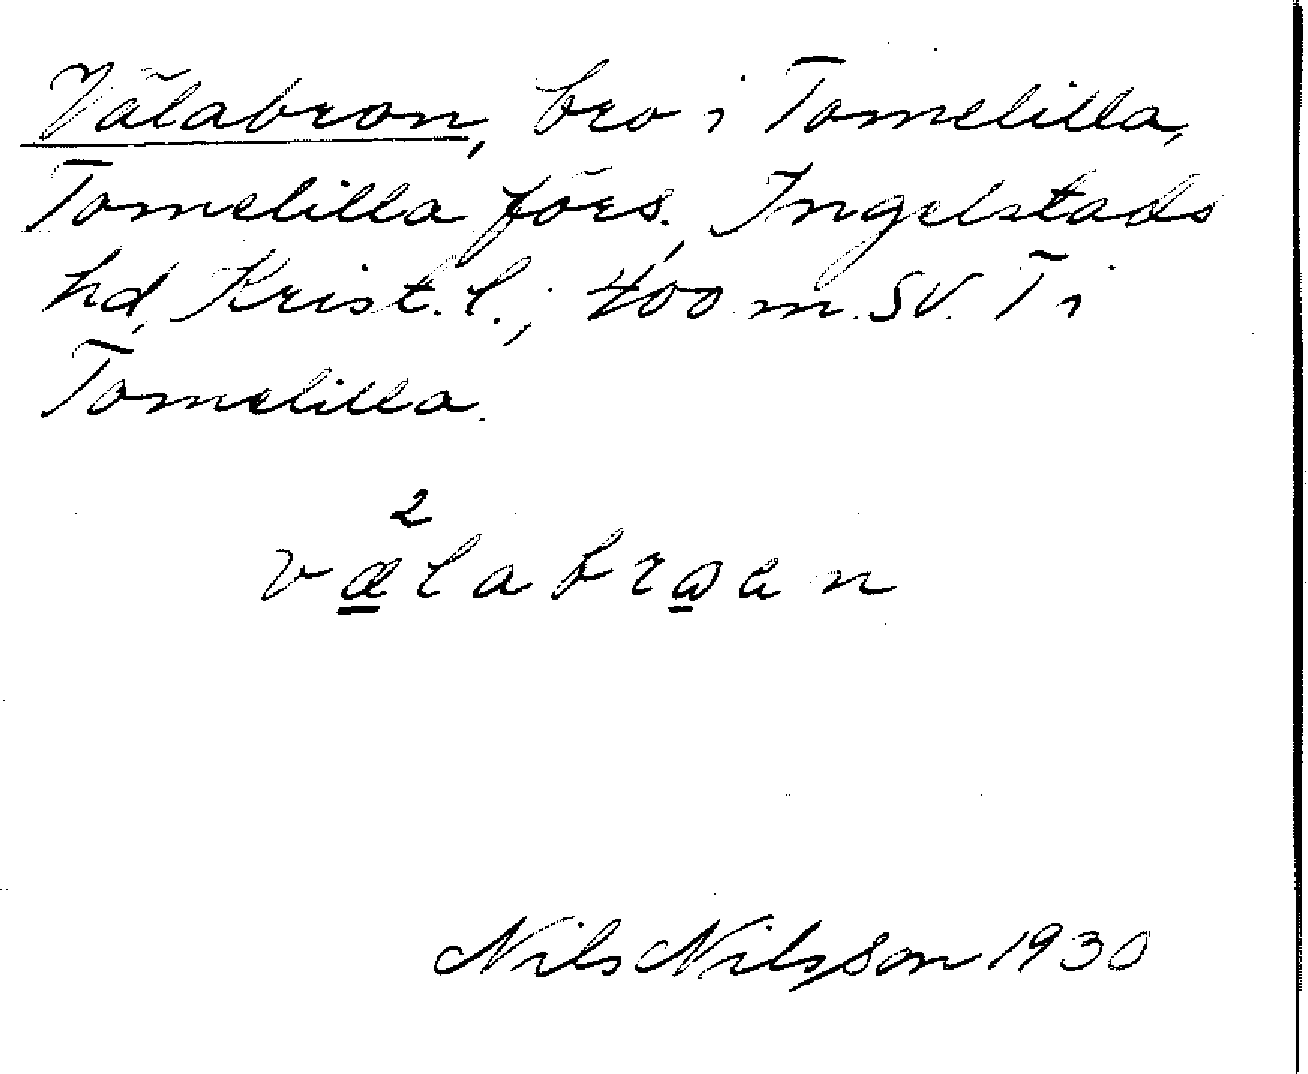 Välabron, bro i Tomelilla,
Tomelilla förs., Ingelstads
hd, Krist. l.; 400 m. SV. T i
Tomelilla.
2
vælabroen
Nils Nilsson 1930